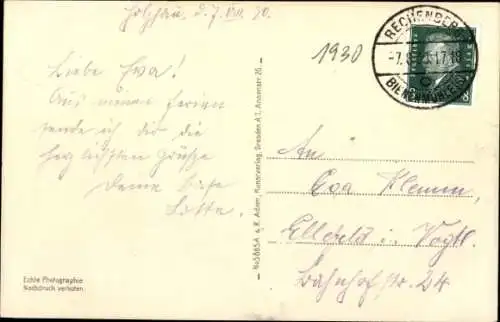 Holzhau, d. 7. VIII. 30.
Liebe Eva!
Aus meinen Ferien
sende ich dir die
herzlichsten Grüße
Deine
Lotte.
Echte Photographie
Nachdruck verboten.
No 5685A a. R. Adam, Kunstverlag, Dresden A 1, Annenstr. 20
1930
RECHENBERG
BIENENMÜHLE
8
An
Eva Klemm,
Ellefeld i. Vogtl.
Bahnhofstr. 24